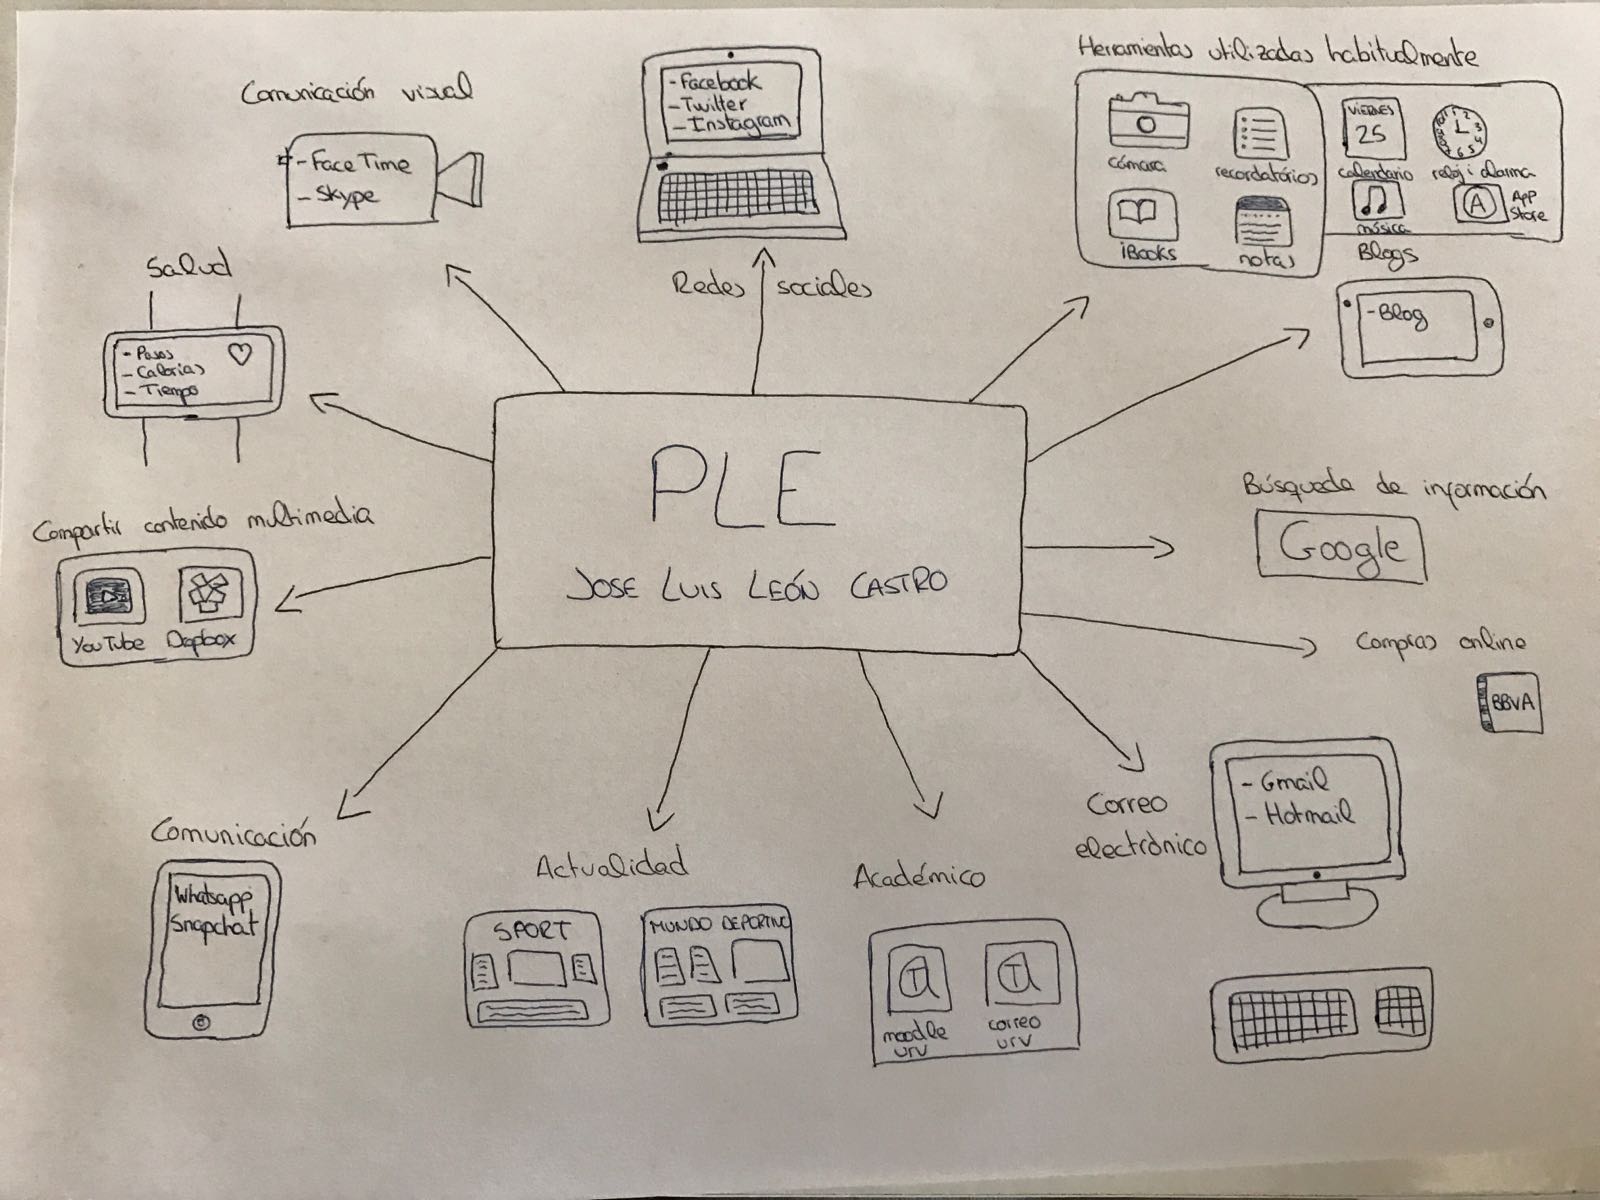 Comunicación visual
- FaceTime
- Skype
- Facebook
- Twitter
- Instagram
Redes sociales
Herramientas utilizadas habitualmente
cámara
recordatórios
iBooks
notas
VIERNES
25
calendario
reloj i alarma
música
A
App
Store
Blogs
- Blog
Salud
- Pasos
- Calorías
- Tiempo
PLE
JOSE LUIS LEÓN CASTRO
Búsqueda de información
Google
Compartir contenido multimedia
YouTube
Dropbox
Compras online
BBVA
Comunicación
Whatsapp
Snapchat
Actualidad
SPORT
MUNDO DEPORTIVO
Académico
moodle
urv
correo
urv
Correo
electrónico
- Gmail
- Hotmail